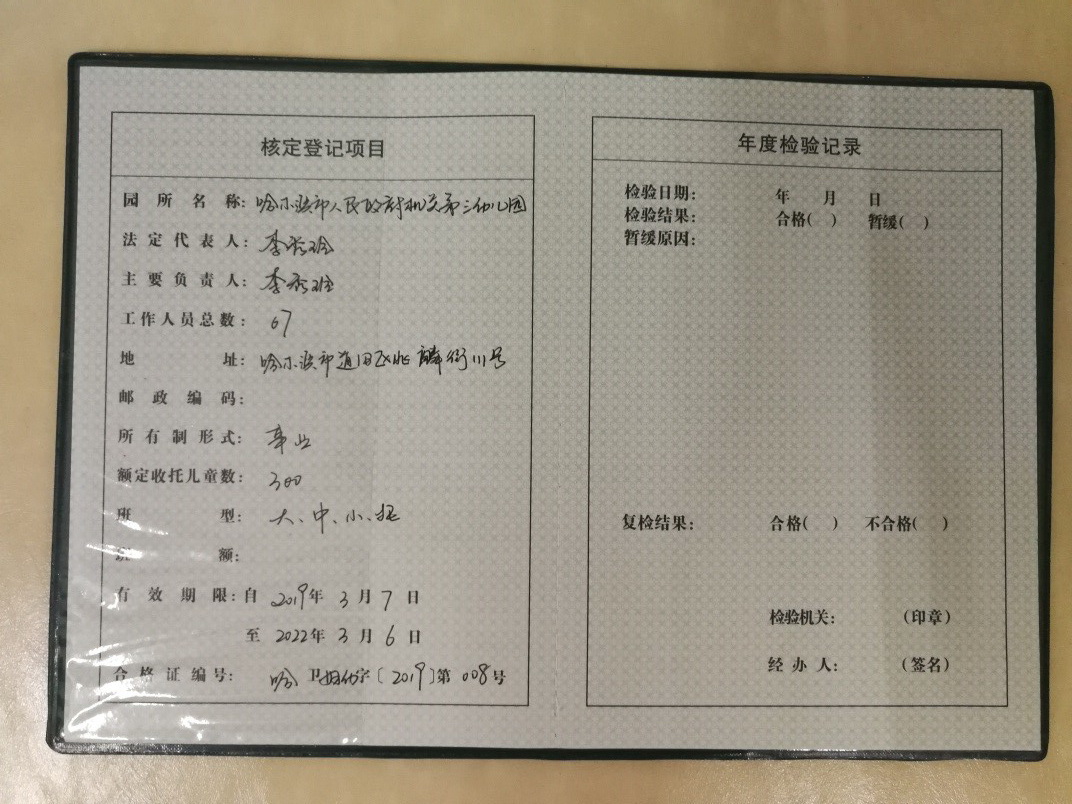 核定登记项目
园所名称: 哈尔滨市人民政府机关第三幼儿园
法定代表人: 李秀玲
主要负责人: 李秀玲
工作人员总数: 67
地址: 哈尔滨市道里区兆麟街111号
邮政编码:
所有制形式: 事业
额定收托儿童数: 300
班型: 大、中、小、托
班额:
有效期限:自 2019年 3月 7日
至 2022年 3月 6日
合格证编号: 哈卫妇幼字〔2019〕第008号
年度检验记录
检验日期: 年 月 日
检验结果: 合格( ) 暂缓( )
暂缓原因:
复检结果: 合格( ) 不合格( )
检验机关: (印章)
经办人: (签名)